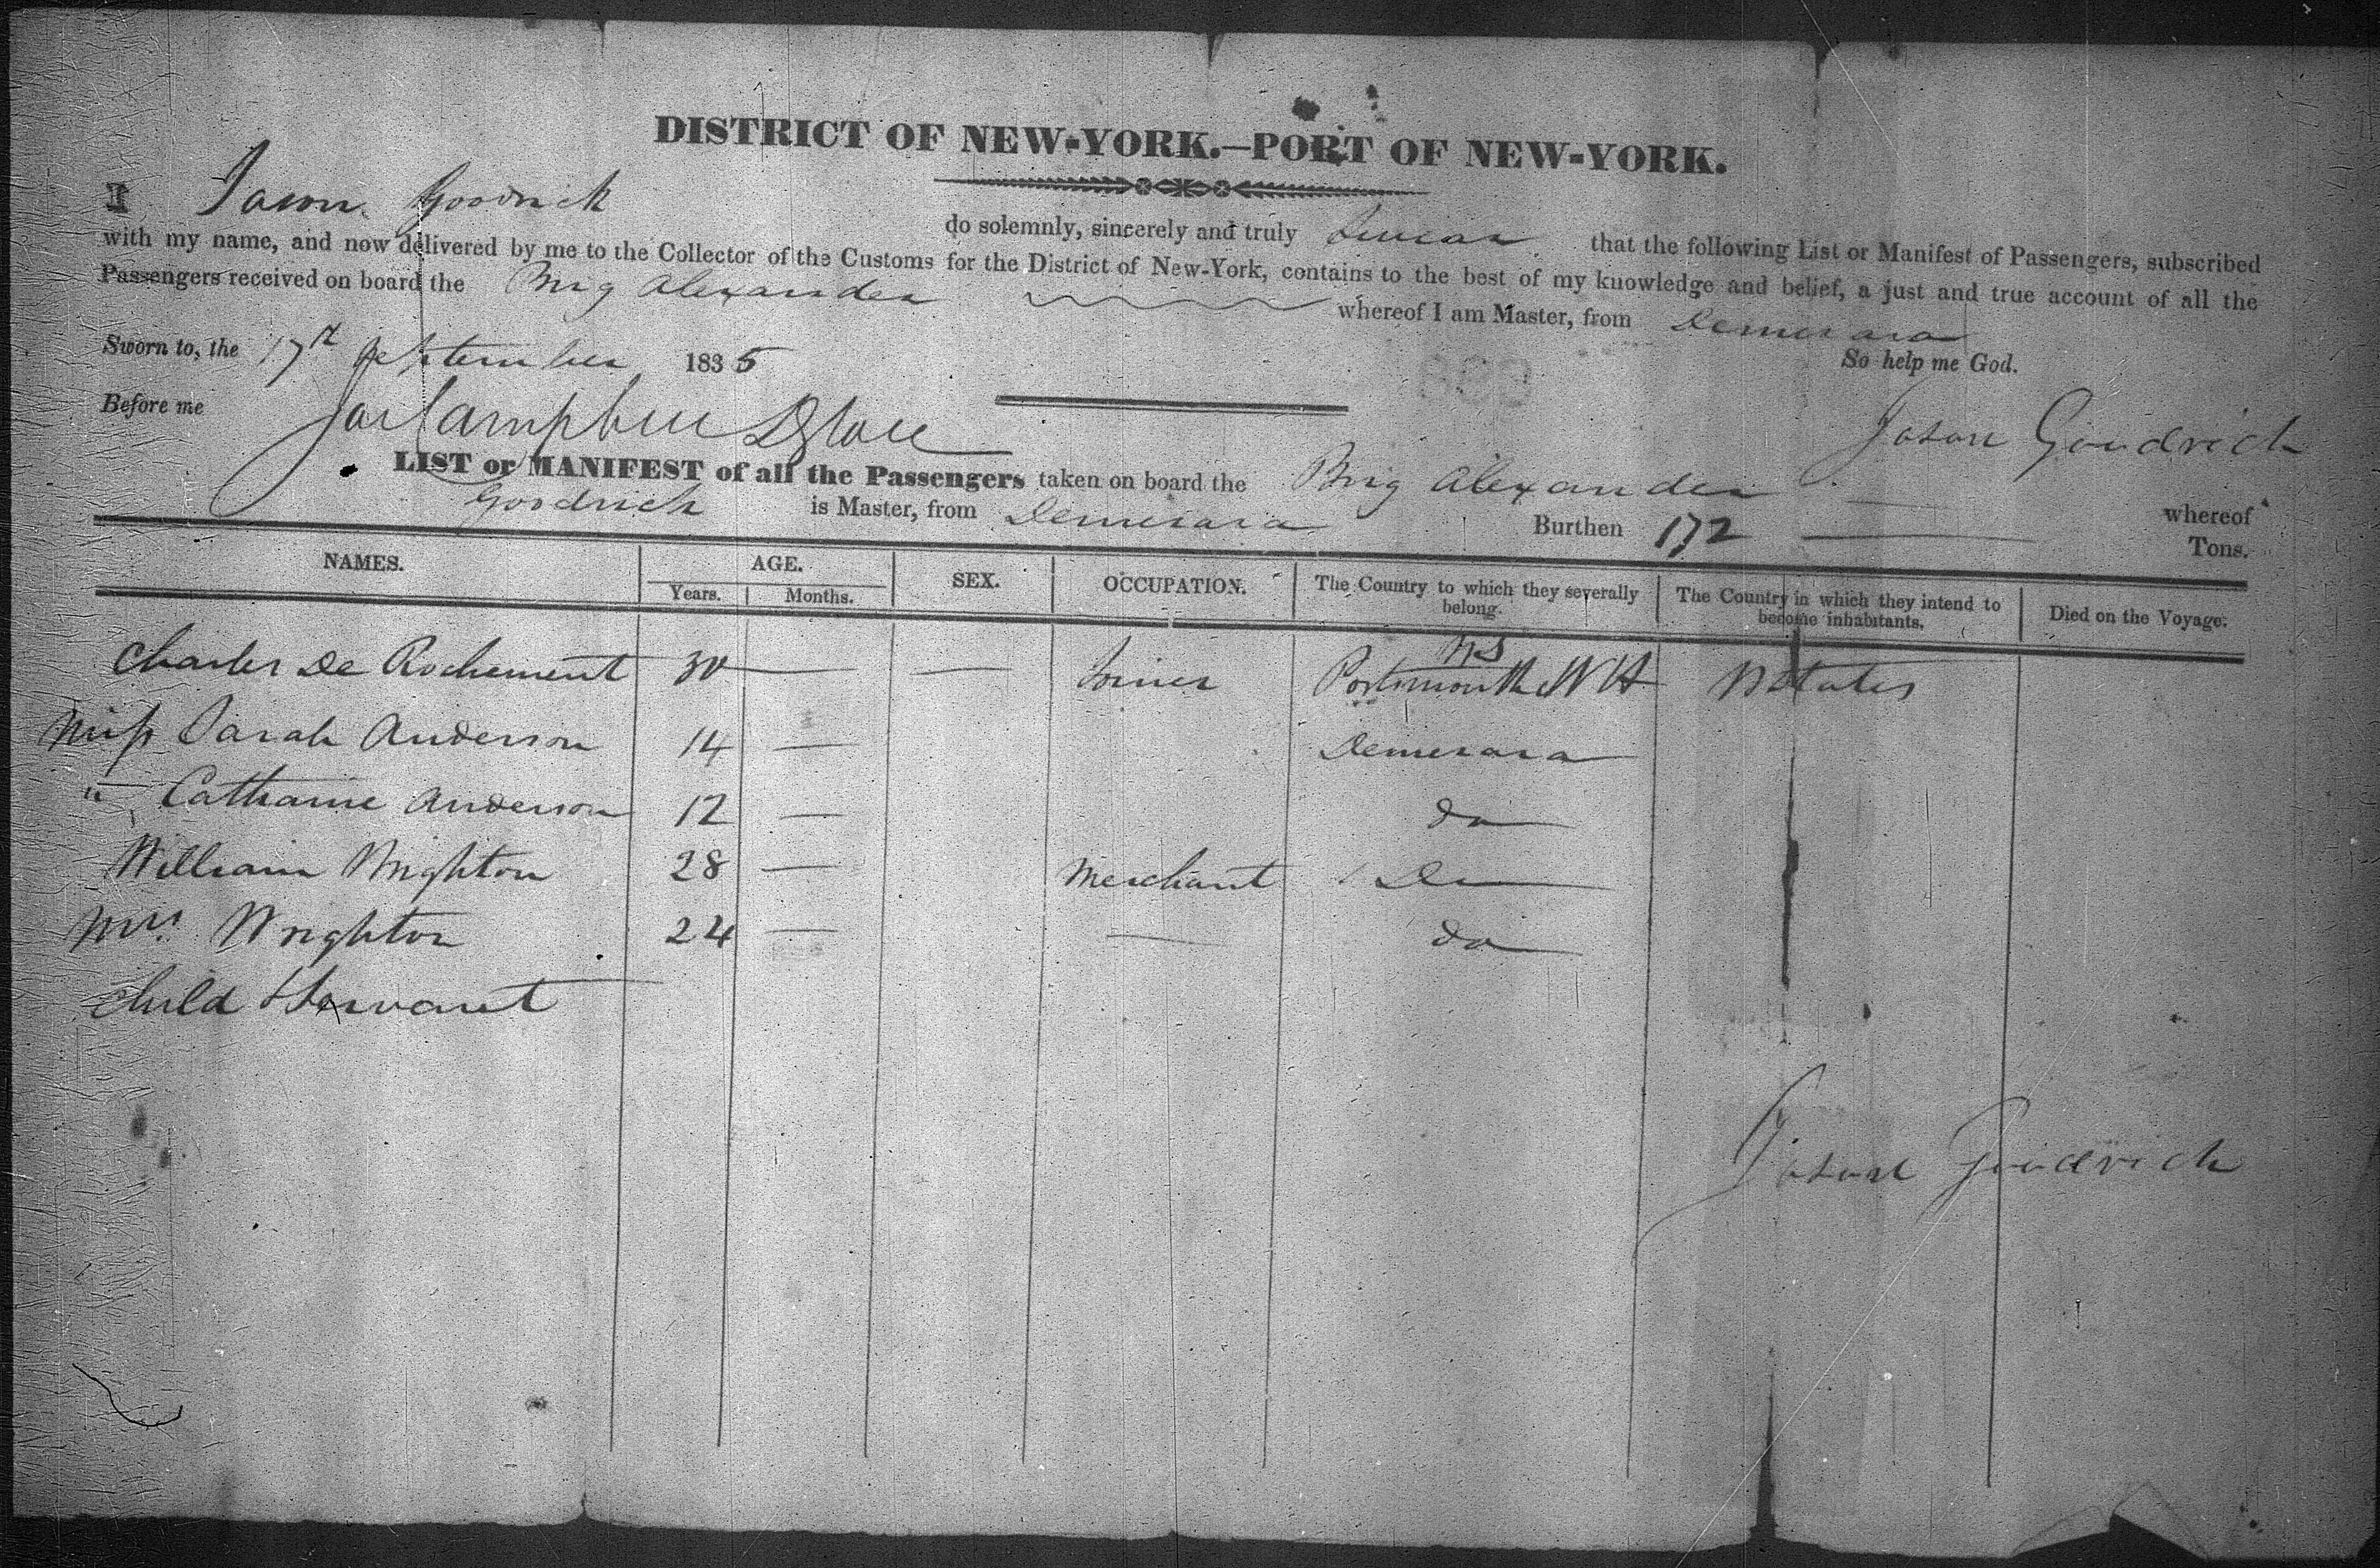 DISTRICT OF NEW-YORK.—PORT OF NEW-YORK.
I Jason Goodrich do solemnly, sincerely and truly swear that the following List or Manifest of Passengers, subscribed
with my name, and now delivered by me to the Collector of the Customs for the District of New-York, contains to the best of my knowledge and belief, a just and true account of all the
Passengers received on board the Brig Alexander whereof I am Master, from Demerara
Sworn to, the 17th September 1835 So help me God.
Before me Campbell Jason Goodrich
LIST or MANIFEST of all the Passengers taken on board the Brig Alexander whereof
Goodrich is Master, from Demerara Burthen 172 Tons.
NAMES. AGE. SEX. OCCUPATION. The Country to which they severally belong. The Country in which they intend to become inhabitants. Died on the Voyage.
Years. Months.
Charles De Rochemont 30 — — Joiner Portsmouth NH
Miss Sarah Anderson 14 — Demerara
" Catharine Anderson 12 — do
William Wrighton 28 — Merchant De
Mrs. Wrighton 24 — — do
Child & Servant
Jason Goodrich